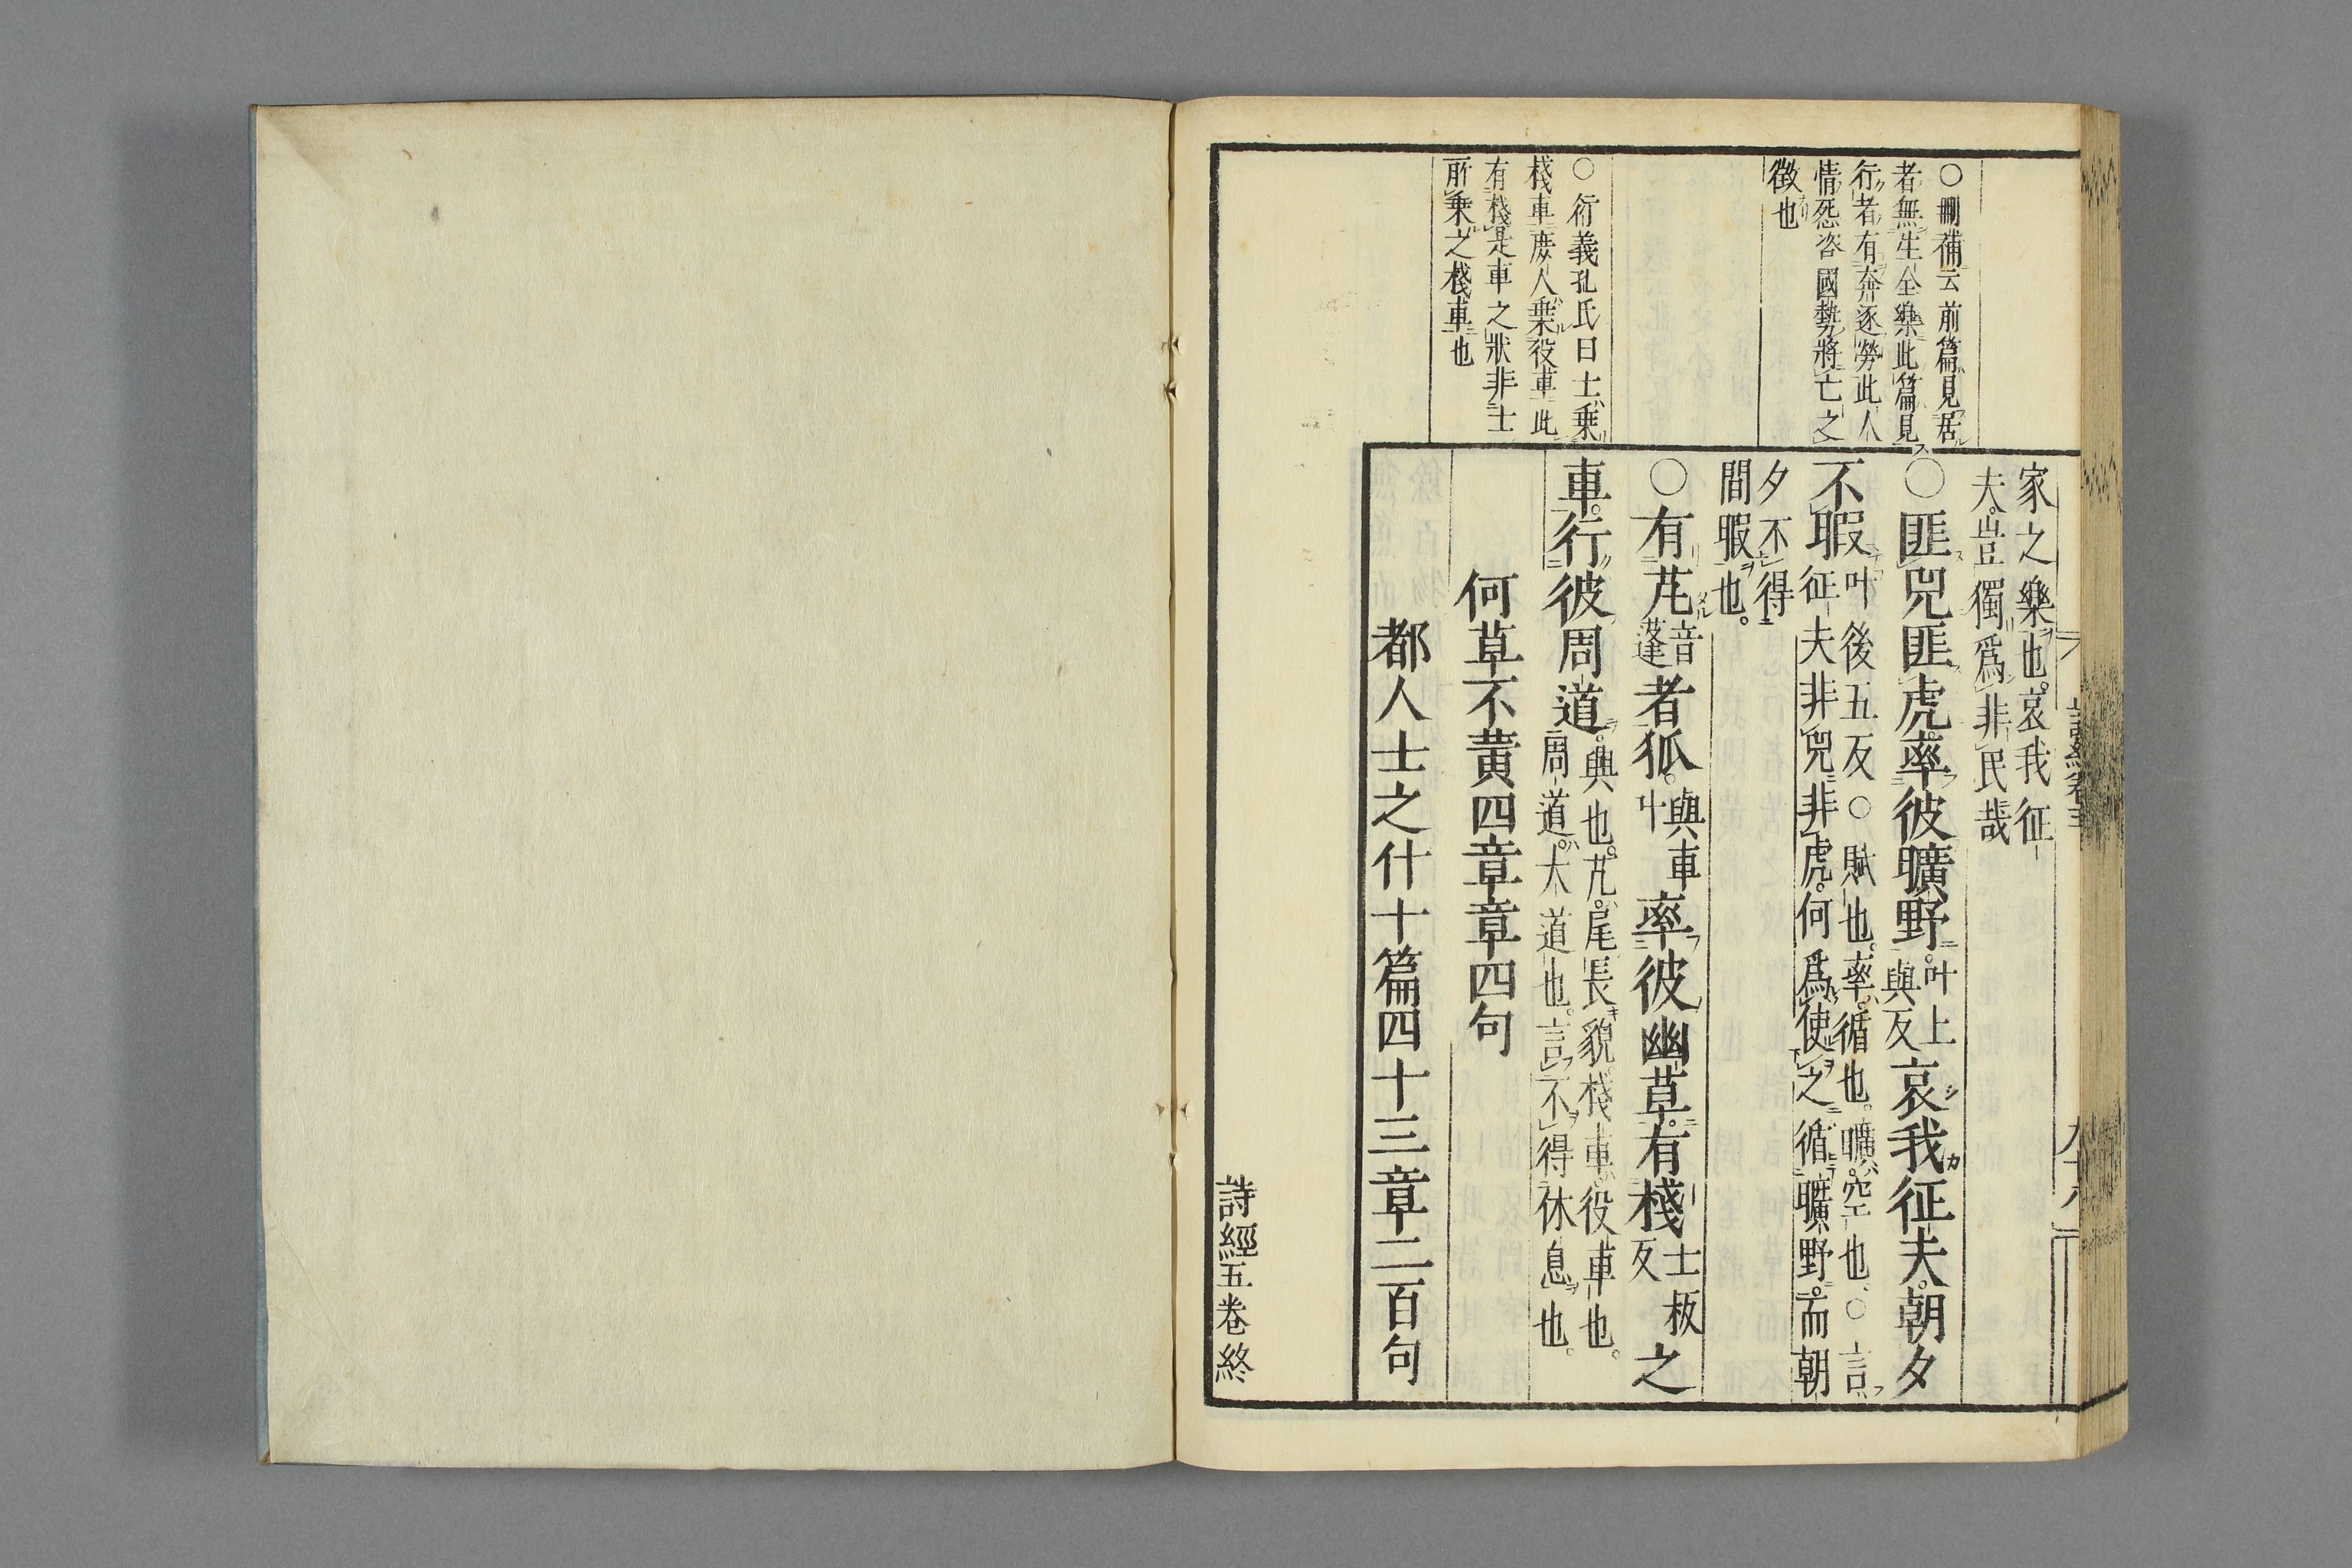 ○刪補云前篇見居
者無生全樂此篇見
行者有奔逐勞此人
情怨咨國勢將亡之
徴也
○衍義孔氏曰士乗
棧車庶人乗役車此
有棧是車之狀非士
所乗之棧車也
家之樂也。哀我征
夫。豈獨爲非民哉
○匪兕匪虎。率彼曠野。叶上與反哀我征夫。朝夕
不暇叶後五反○賦也。率。循也。曠。空也。○言
征夫非兕非虎。何爲使之循曠野。而朝
夕不得
間暇也。
○有芃音蓬者狐。與車叶率彼幽草。有棧士板反之
車。行彼周道。興也。芃。尾長貌。棧車。役車也。
周道。大道也。言不得休息也。
何草不黄四章章四句
都人士之什十篇四十三章二百句
詩經五卷終